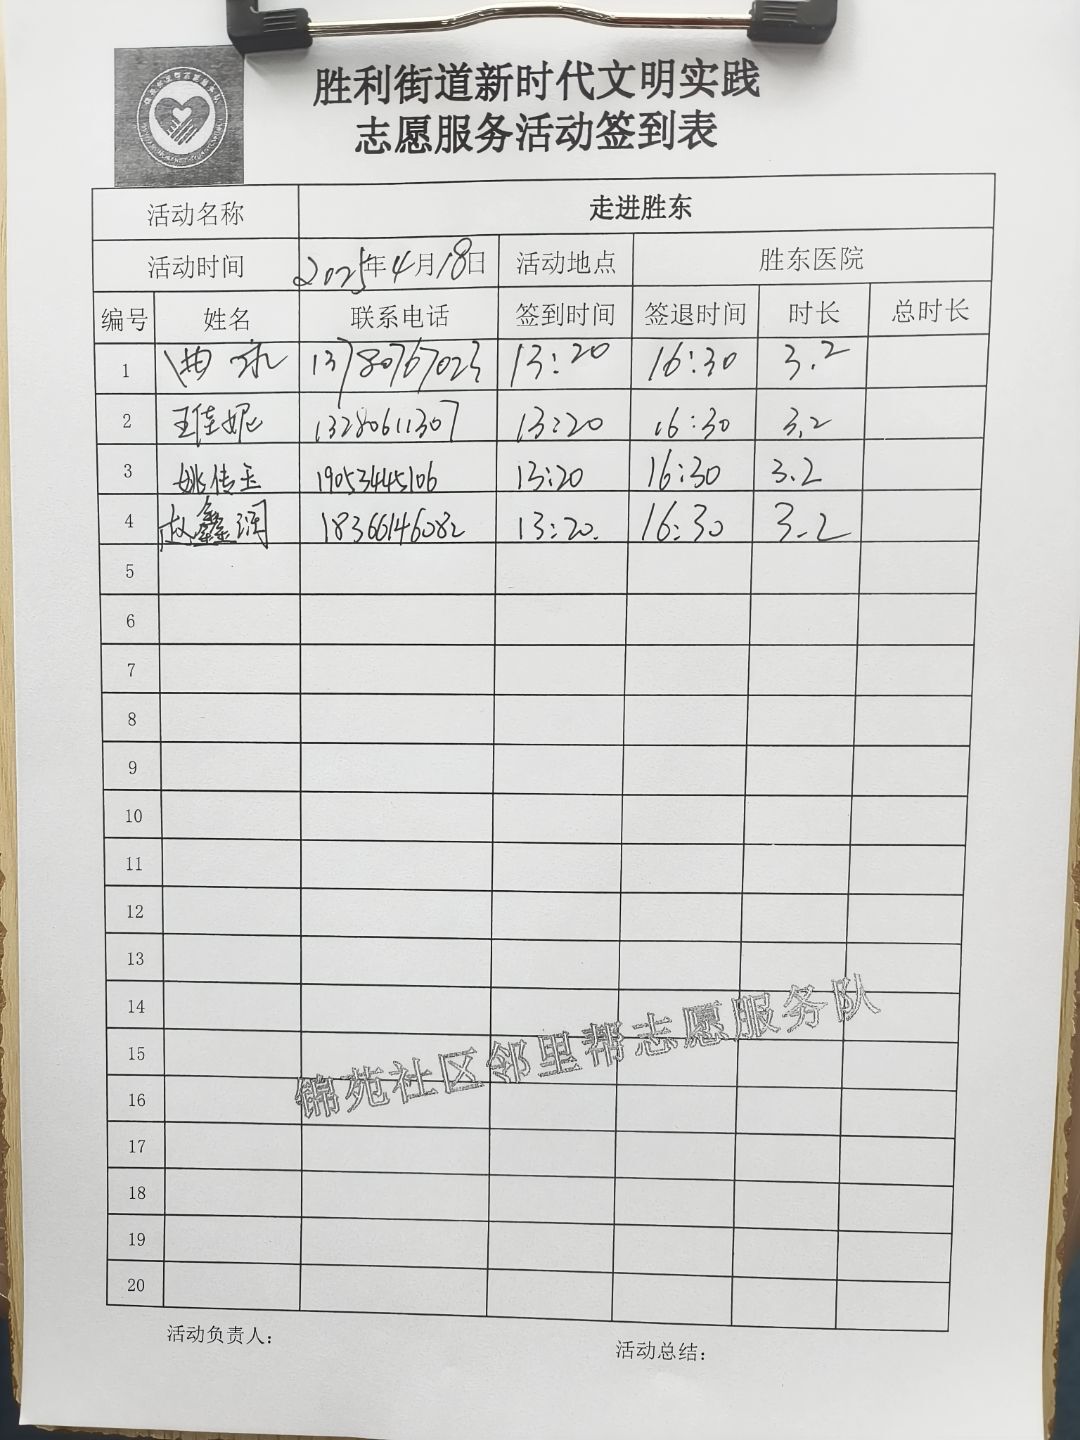 胜利街道新时代文明实践
志愿服务活动签到表
活动名称 走进胜东
活动时间 2025年4月18日 活动地点 胜东医院
编号 姓名 联系电话 签到时间 签退时间 时长 总时长
1 13780767023 13:20 16:30 3.2
2 王佳妮 13280611307 13:20 16:30 3.2
3 姚传玉 19053445106 13:20 16:30 3.2
4 赵鑫润 18366146082 13:20. 16:30 3.2
5
6
7
8
9
10
11
12
13
14
15
16
17
18
19
20
锦苑社区邻里帮志愿服务队
活动负责人：
活动总结：